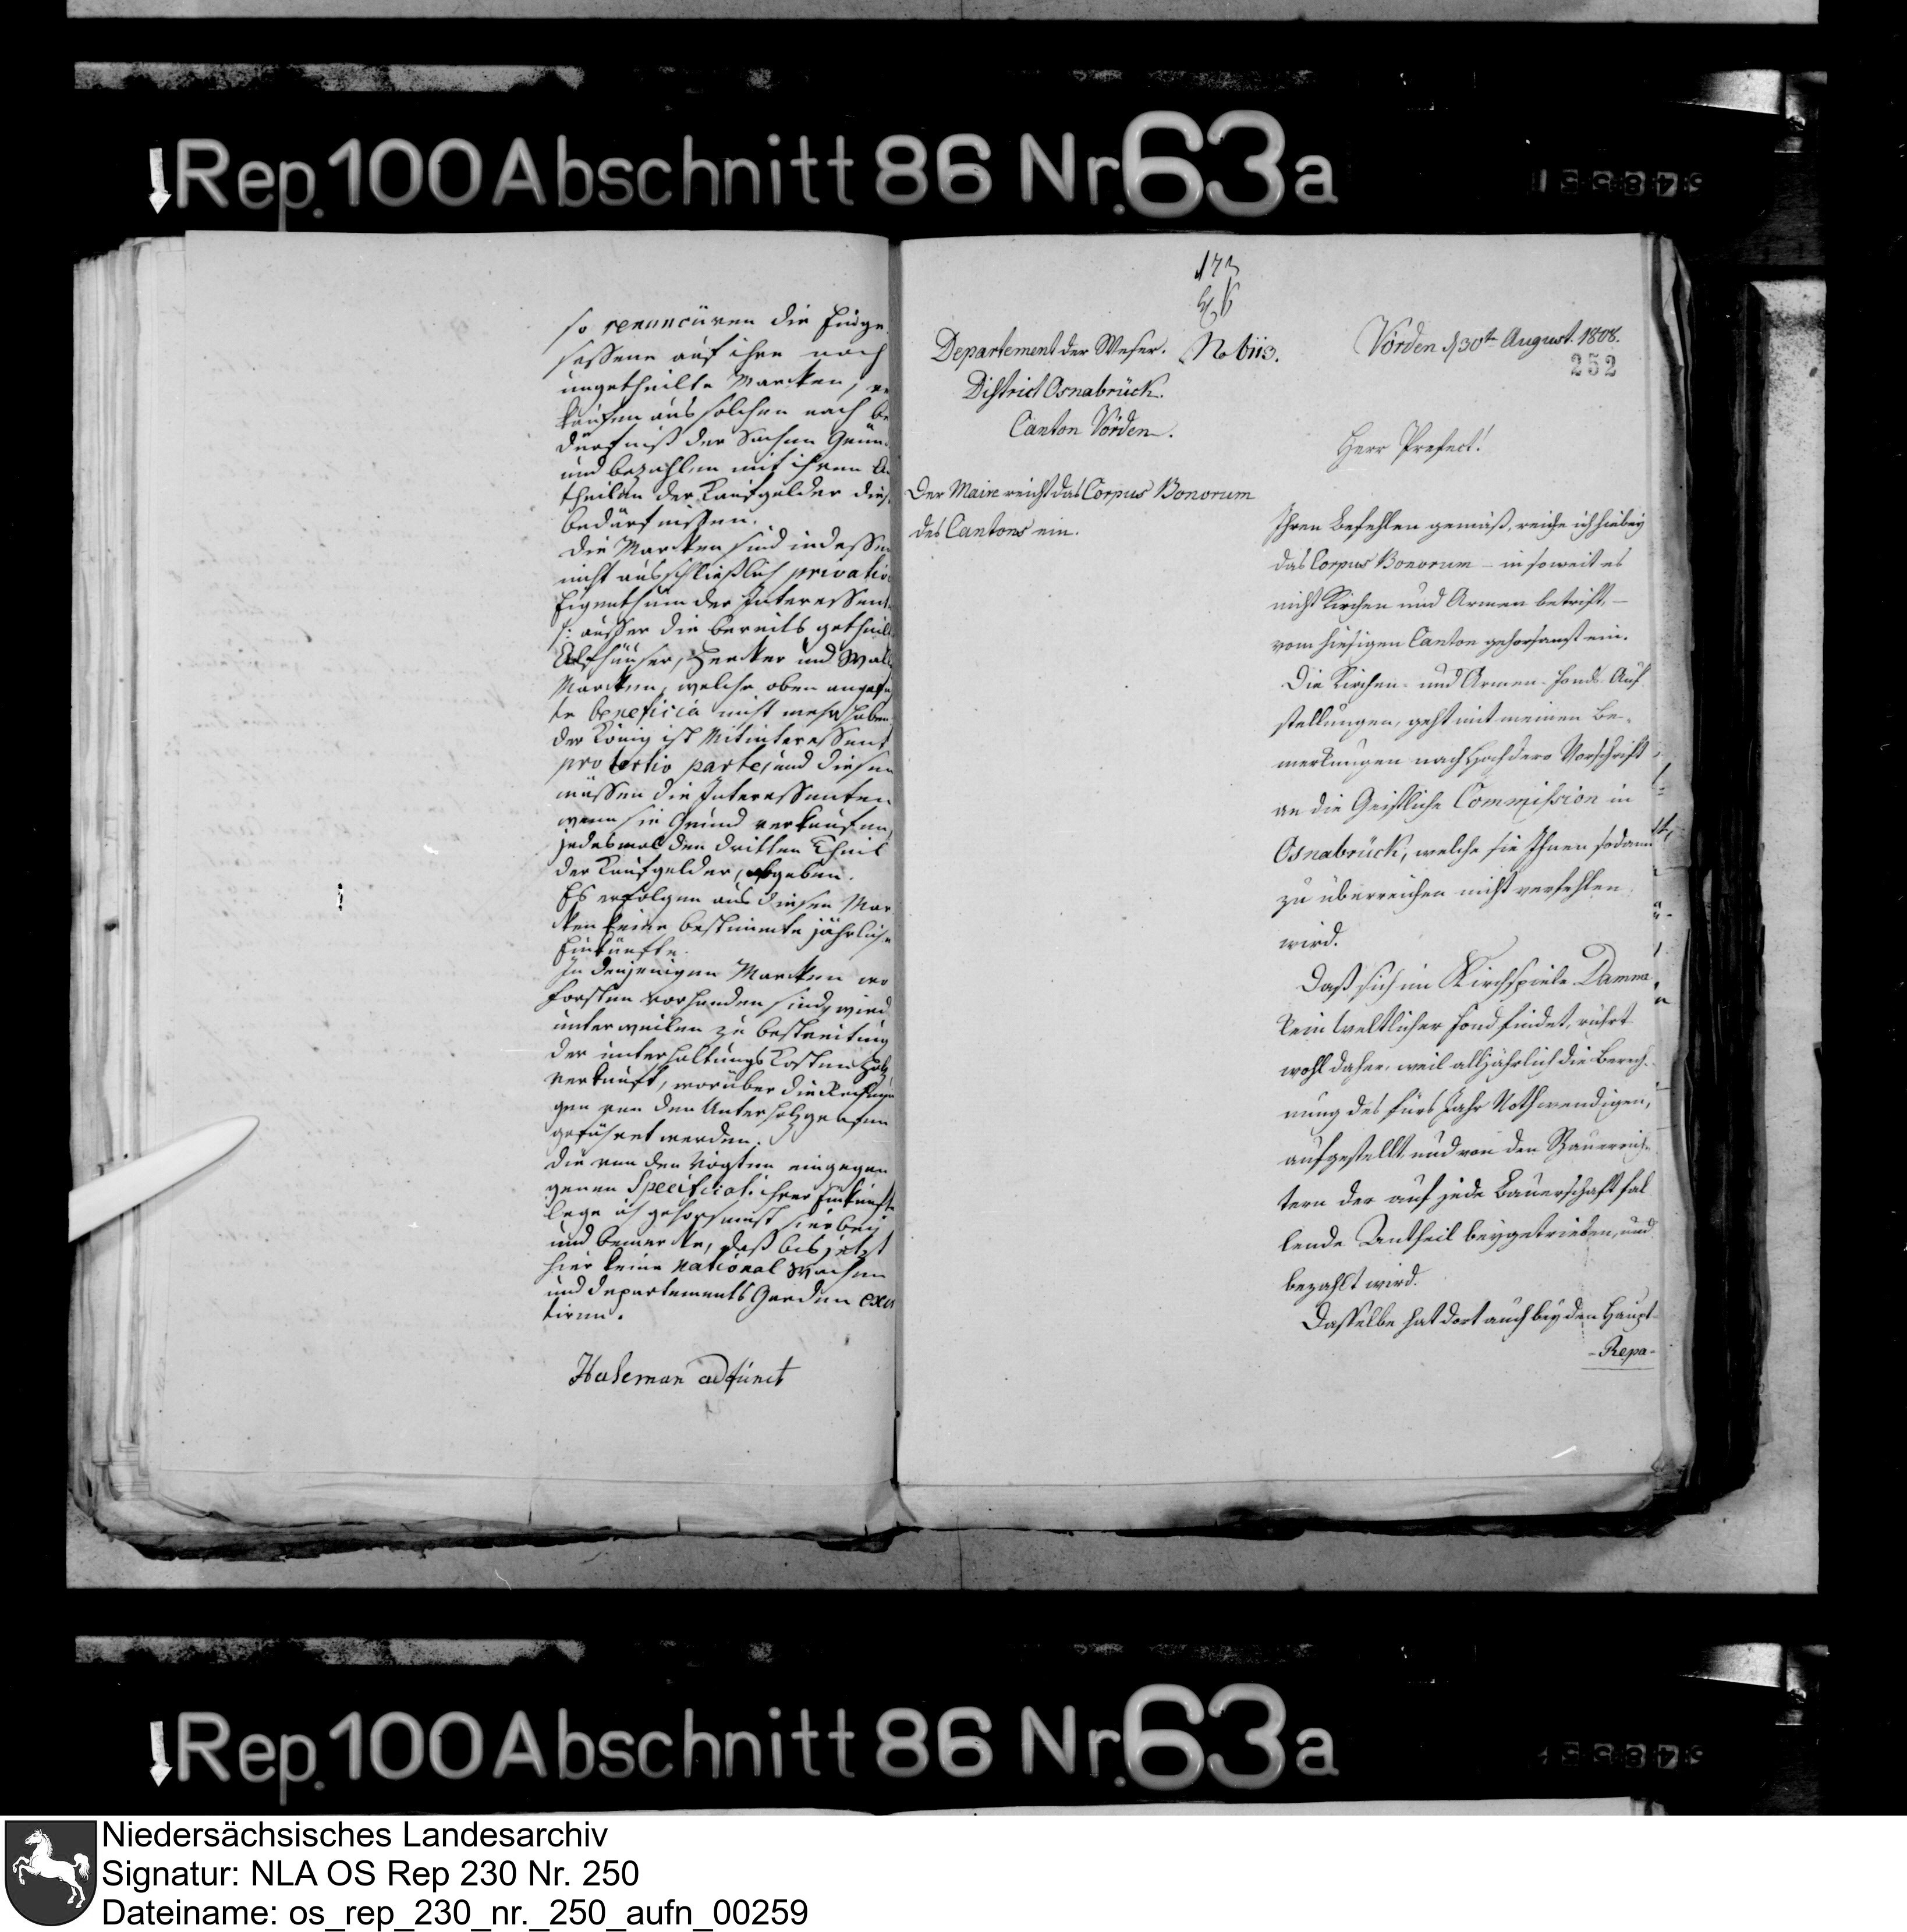 Rep. 100 Abschnitt 86 Nr. 63a
so renuncüren die Einge
sessene auf ihre noch
ungetheilte Marcken, ve
kaufen aus solchen nach be
dürfniß der Sachen Grün
und bezahlen mit ihren An
theilen der Kaufgelder diese
bedürfnissen.
die Marcken sind indessen
nicht ausschließlich privative
Eigenthum der Interessent
/: ausser die bereits getheil
Alfhäuser, Hencker und Wal
Marcken, welche oben angef
te beneficia nicht mehr haben
der König ist Mitinteressent
pro tertio parte, und diesem
müssen die Interessenten
wenn sie Grund verkaufen,
jedesmal den dritten Theil
der Kaufgelder, abgeben.
Es erfolgen aus diesen Mar
cken keine bestimmte jährliche
Einkünfte.
In denjenigen Marcken wo
Forsten vorhanden sind, wird
unterweilen zu bestreitung
der unterhaltungs Kosten Holz
verkauft, worüber die Rechnun
gen von den Unterholzgrefen
geführet werden.
die von den Vögten eingegan
genen Specificat. ihrer Einkünfte
lege ich gehorsamst hierbey
und bemercke, daß bis jetzt
hier keine national Wachen
und departements Garden exis
tiren.
Haleman adjunct
173
Departement der Weser. No 6113.
District Osnabrück.
Canton Vörden.
Vörden d 30ten August. 1808.
252
Der Maire reicht das Corpus Bonorum
des Cantons ein.
Herr Prefect!
Ihren Befehlen gemäß, reiche ich hiebey
das Corpus Bonorum – in soweit es
nicht Kirchen und Armen betrift, –
vom hiesigen Canton gehorsamst ein.
Die Kirchen- und Armen-Fonds-Auf
stellungen, geht mit meinen Be-
merkungen nach Hochdero Vorschrift
an die Geistliche Commission in
Osnabrück, welche sie Ihnen sodann
zu überreichen nicht verfehlen
wird.
Daß sich im Kirchspiele Damme
kein Weltlicher Fond findet, rührt
wohl daher, weil alljährlich die Berech-
nung des fürs Jahr Nothwendigen,
aufgestellt und von den Bauerrich-
tern der auf jede Bauerschaft fal
lende Antheil beygetrieben, und
bezahlt wird.
Dasselbe hat dort auch bey den Haupt-
- Repa-
Rep. 100 Abschnitt 86 Nr. 63a
Niedersächsisches Landesarchiv
Signatur: NLA OS Rep 230 Nr. 250
Dateiname: os_rep_230_nr._250_aufn_00259